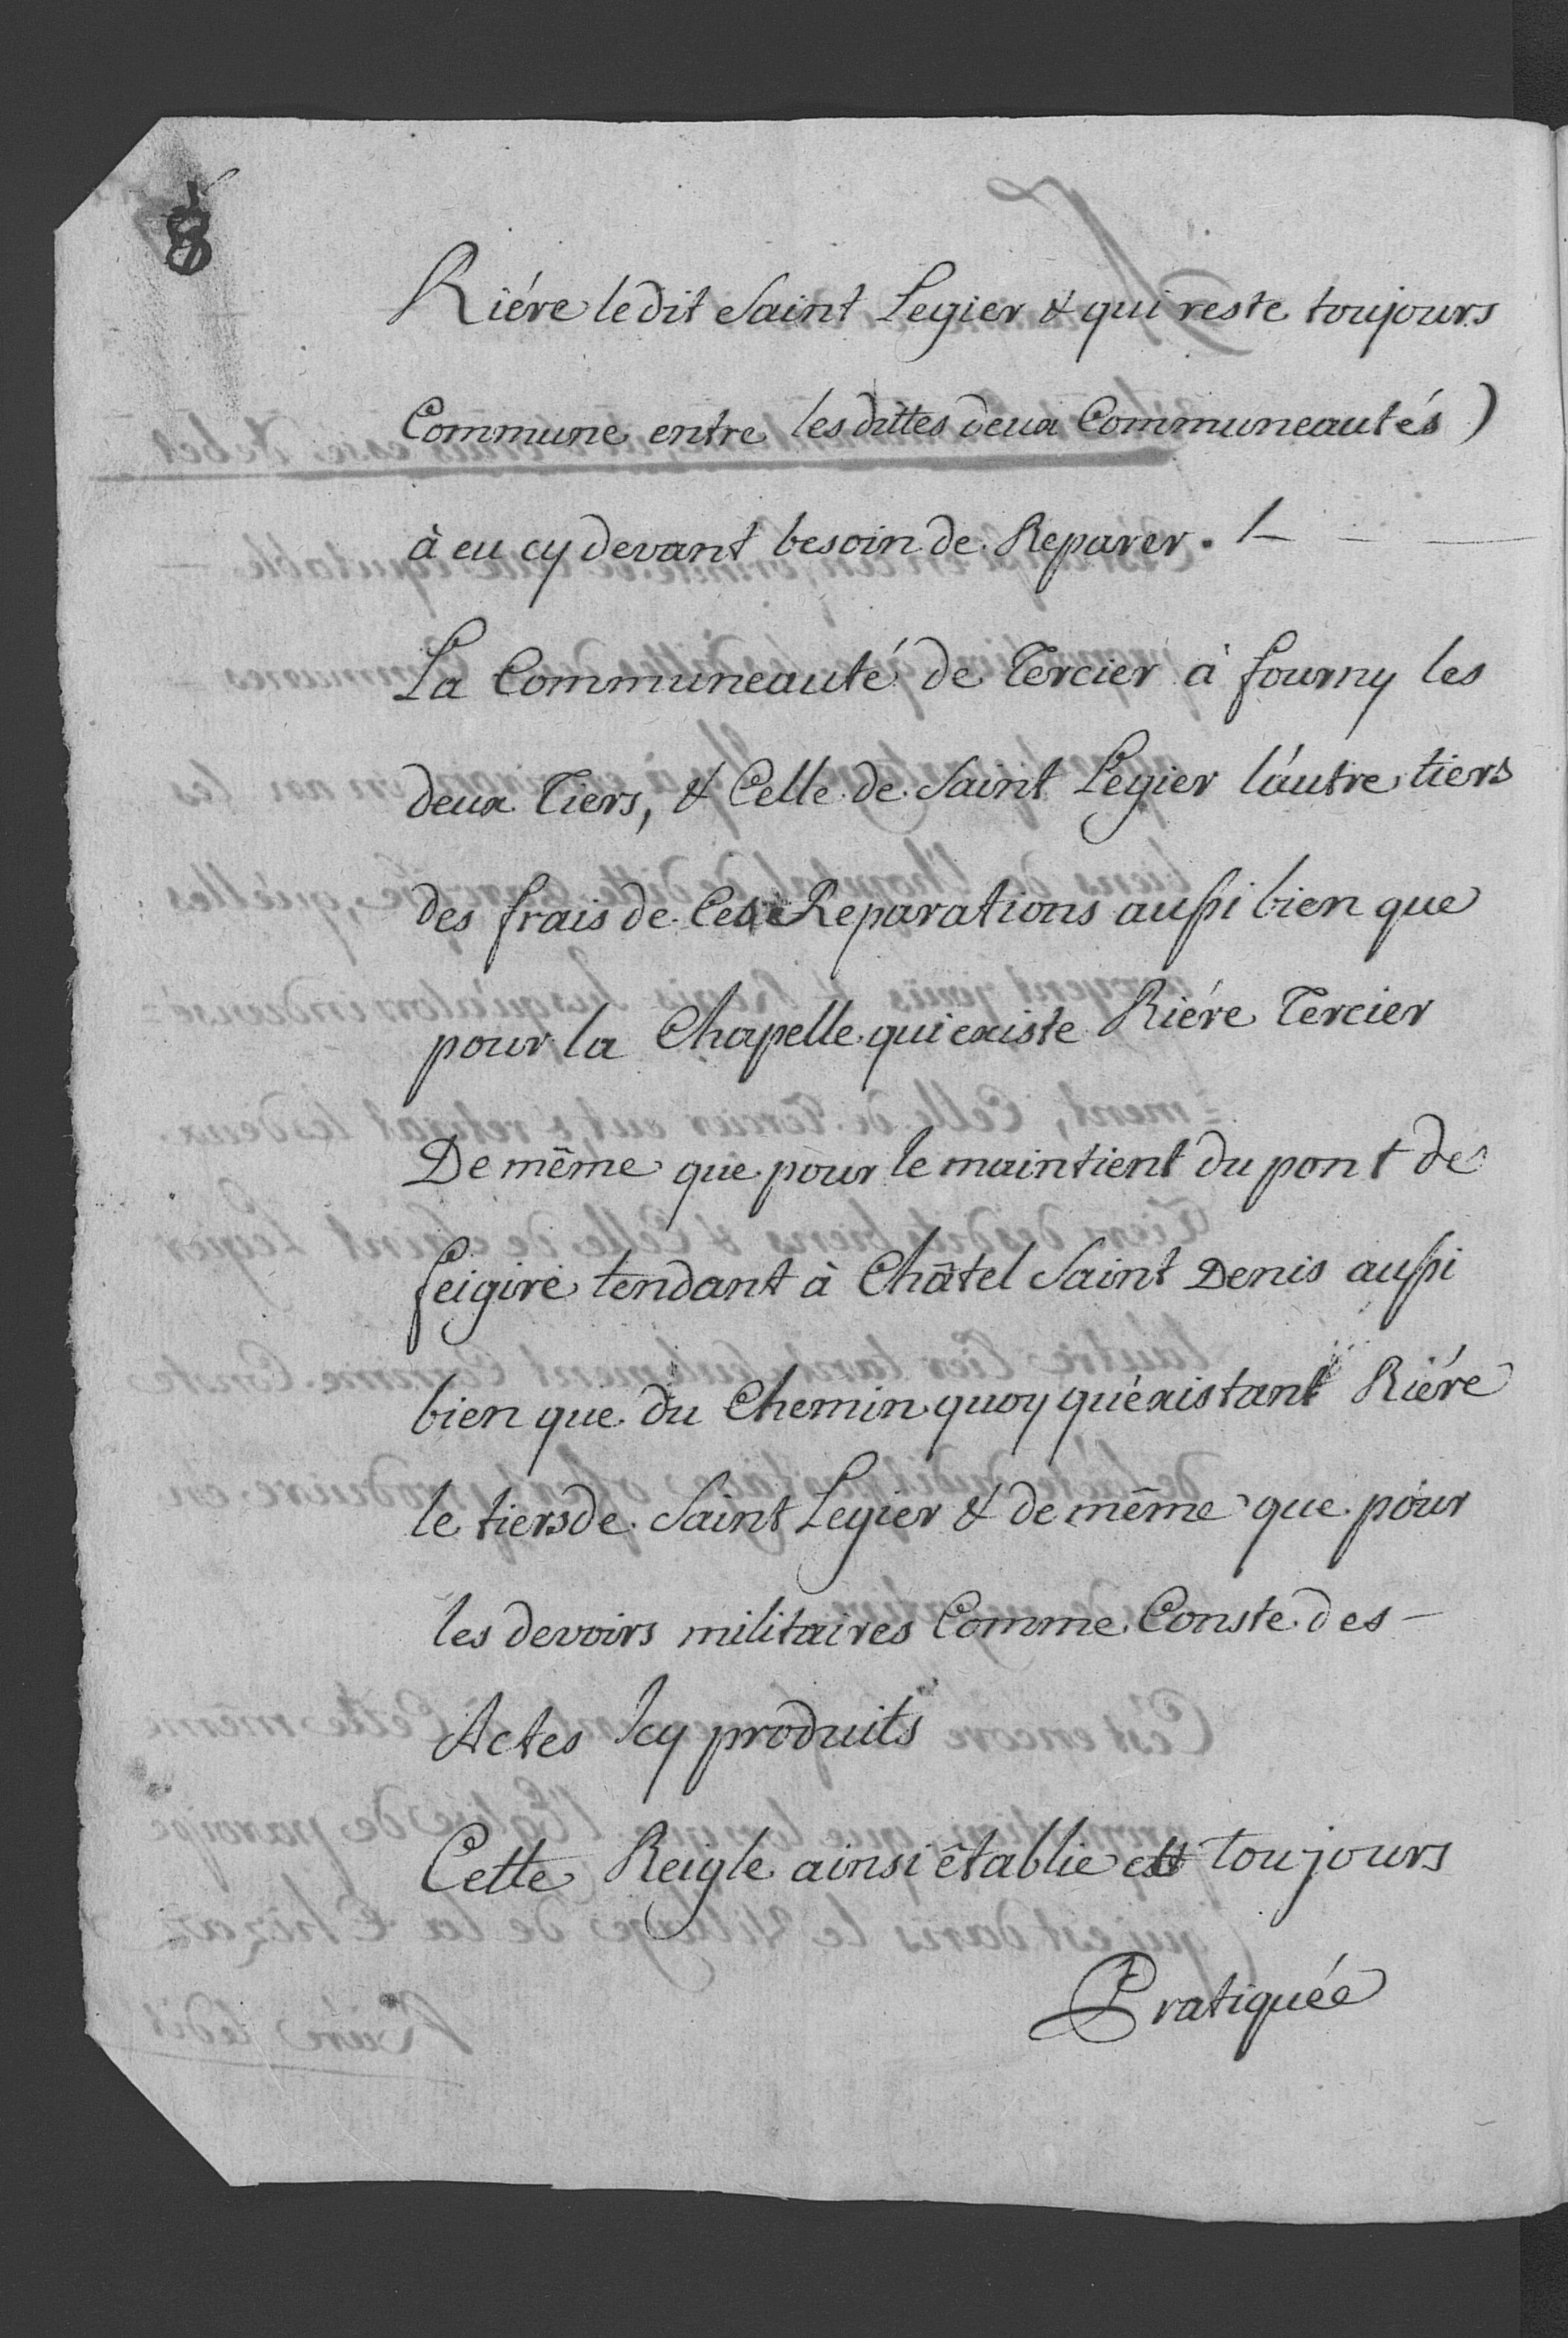 8
Riére le dit Saint Legier & qui reste toujours
Commune entre les dittes deux Communeautés)
à eu cy devant besoin de Reparer. /.
La Communeauté de Tercier à fourny les
deux Tiers, & Celle de Saint Legier láutre tiers
des frais de Ces Reparations aussi bien que
pour la Chapelle qui existe Riére Tercier
De même que pour le maintient du pont de
feigire tendant à Châtel Saint Denis aussi
bien que du Chemin quoy quéxistant Riére
le tiers de Saint Legier & de même que pour
les devoirs militaires Comme Conste des
Actes Icy produits
Cette Reigle ainsi êtablie est toujours
Pratiquée